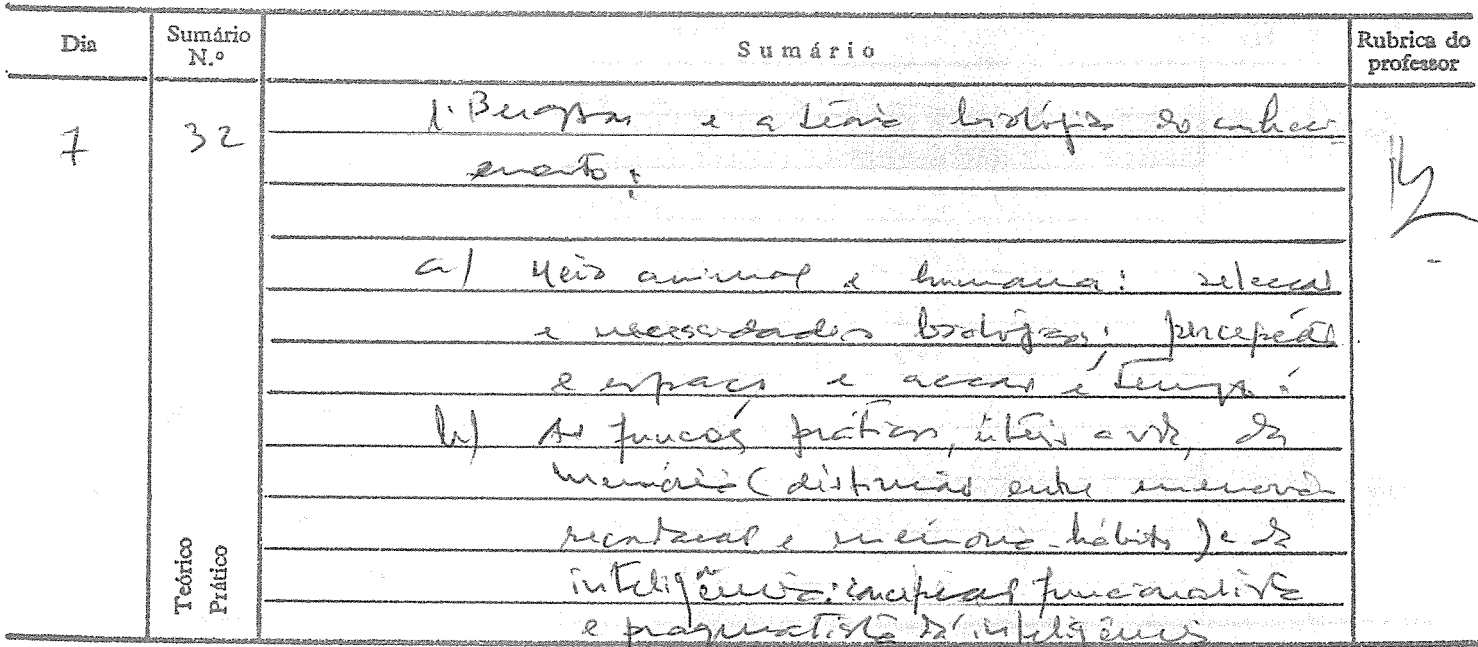 Dia
Sumário N.º
Sumário
Rubrica do professor
7
32
1. Bergson e a teoria biológica do conheci-
mento:
a) Meio animal e humano: selecção
e necessidades biológicas; percepção
e espaço e acção e tempo:
b) As funções práticas, úteis a vida, da
memória (distinção entre memória
recordação e memória-hábito) e da
inteligência: concepção funcionalista
e pragmatista da inteligência
Teórico
Prático